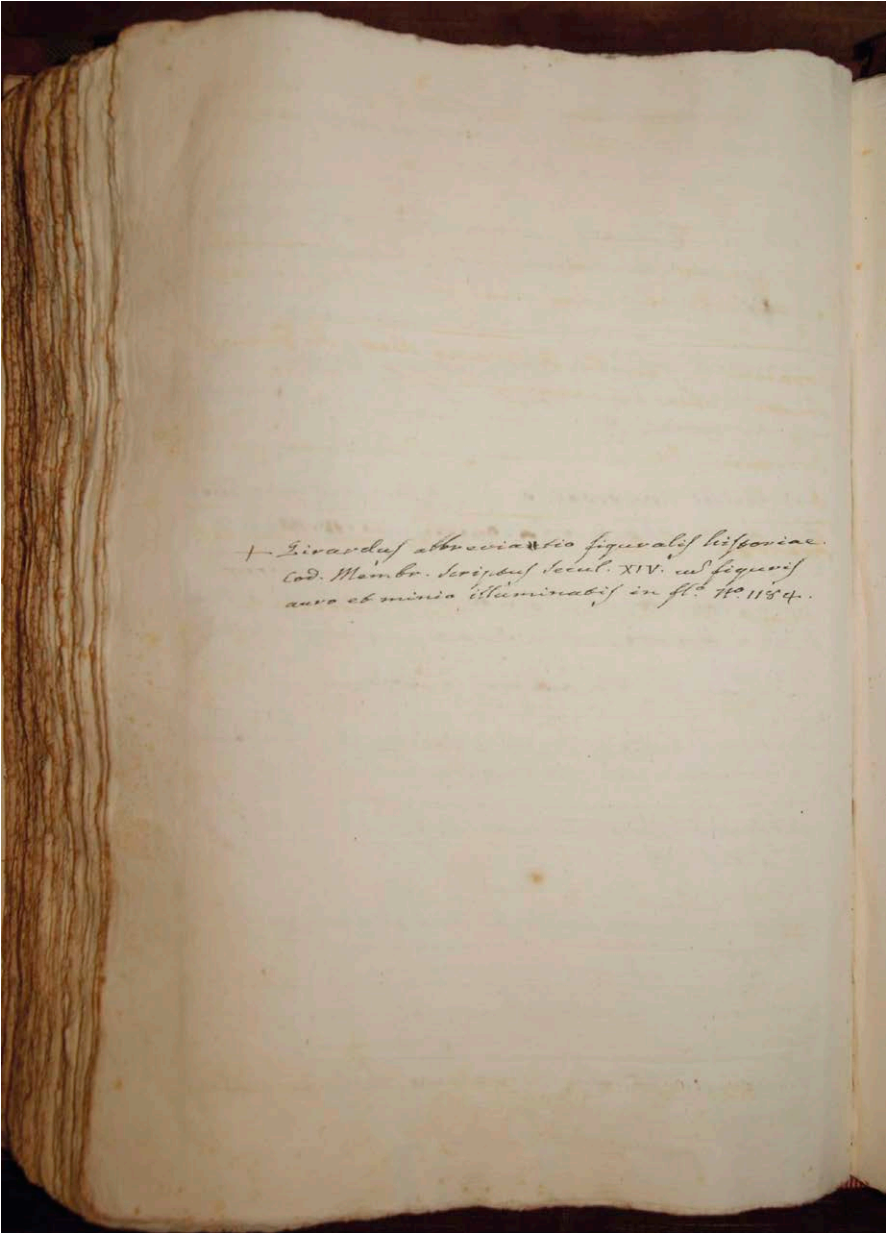 + Girardus abbreviatio figuralis historiae.
Cod. Membr. scriptus secul. XIV. cũ figuris
auro et minio illuminatis in fl.º Nº. 1184.